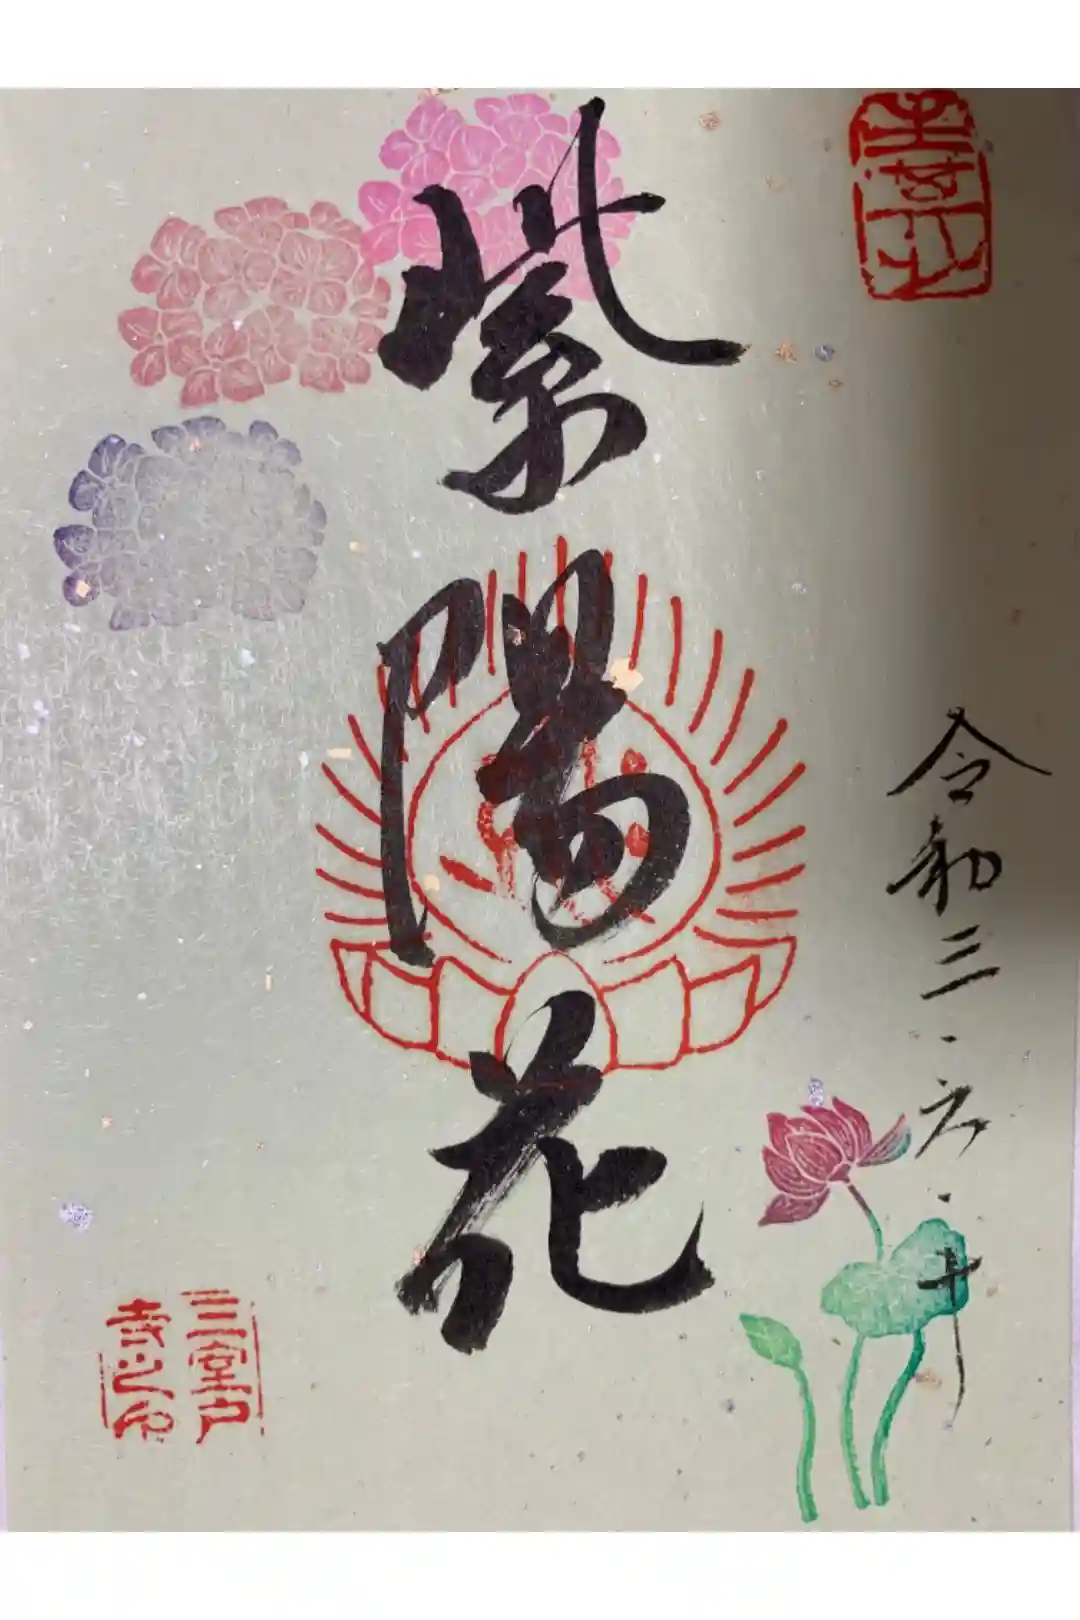 令和三.六.十
紫陽花
三室戸
寺之印